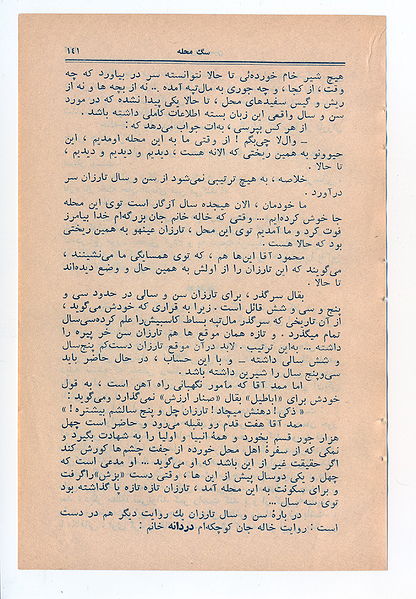 سگ محله ۱۴۱
هیچ شیر خام خورده‌ئی تا حالا نتوانسته سر در بیاورد که چه
وقت ، از کجا ، و چه جوری به مال‌تپه آمده ... نه از بچه ها و نه از
ریش و گیس سفیدهای محل ، تا حالا یکی پیدا نشده که در مورد
سن و سال واقعی این زبان بسته اطلاعات کاملی داشته باشد .
از هر کس بپرسی ، به‌ات جواب می‌دهد که :
ــ والا چی‌بگم ! از وقتی ما به این محله اومدیم ، این
حیوونو به همین ریختی که الانه هست ، دیدیم و دیدیم و دیدیم ،
تا حالا .
خلاصه ، به هیچ ترتیبی نمی‌شود از سن و سال تارزان سر
درآورد .
ما خودمان ، الان هیجده سال آزگار است توی این محله
جا خوش کرده‌ایم ... وقتی که خاله خانم جان بزرگه‌ام خدا بیامرز
فوت کرد و ما آمدیم توی این محل ، تارزان عینهو به همین ریختی
بود که حالا هست .
محمود آقا این‌ها هم ، که توی همسایگی ما می‌نشینند ،
می‌گویند که این تارزان را از اولش به همین حال و وضع دیده‌اند
تا حالا .
بقال سرگذر ، برای تارزان سن و سالی در حدود سی و
پنج و سی و شش قائل است . زیرا به قراری که خودش می‌گوید ،
از آن تاریخی که سرگذر مال‌تپه بساط کاسبیش‌را علم کرده‌سی‌سال
تمام میگذرد . و تازه همان موقع ها هم تارزان سن خر پیره را
داشته ... به‌این ترتیب . لابد درآن موقع تارزان دست‌کم پنج‌سال
و شش سالی داشته ــ و با این حساب ، در حال حاضر باید
سی‌وپنج سال را شیرین داشته باشد .
اما ممد آقا که مامور نگهبانی راه آهن است ، به قول
خودش برای «اباطیل» بقال «صنار ارزش» نمی‌گذارد ومی‌گوید :
« ذکی ! دهنش میچاد ! تارزان چل و پنج سالشم بیشتره ! »
ممد آقا هفت قدم رو بقبله می‌رود و حاضر است چهل
هزار جور قسم بخورد و همهٔ انبیا و اولیا را به شهادت بگیرد و
نمکی که از سفرهٔ اهل محل خورده از جفت چشم‌ها کورش کند
اگر حقیقت غیر از این باشد که او می‌گوید ... او مدعی است که
چهل و یکی دوسال پیش از این ها ، وقتی دست «بزش»راگرفت
و برای سکونت به این محله آمد ، تارزان تازه تازه پا گذاشته بود
توی سه سال ...
در بارهٔ سن و سال تارزان یك روایت دیگر هم در دست
است : روایت خاله جان کوچکه‌ام دردانه خانم :